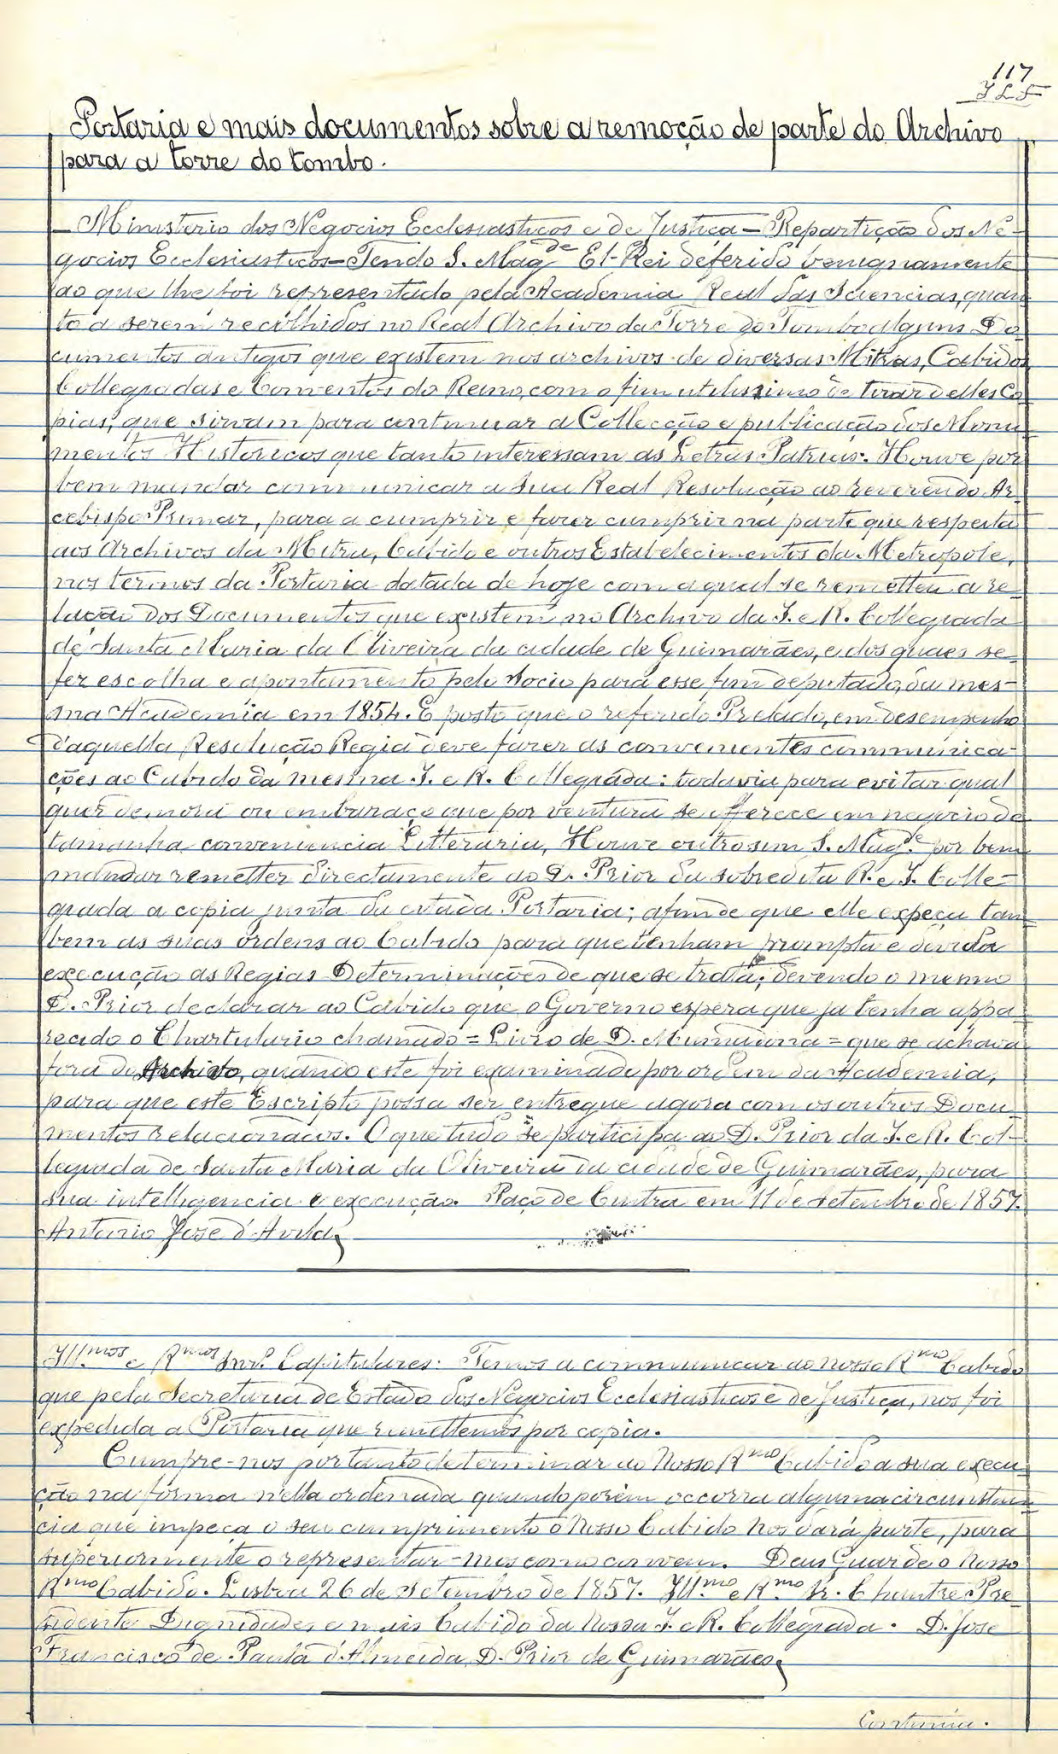 117
Portaria e mais documentos sobre a remoção de parte do Archivo
para a torre do tombo.
— Ministerio dos Negocios Ecclesiasticos e de Justiça — Repartição dos Ne-
gocios Ecclesiasticos — Tendo S. Magde El-Rei deferido benignamente
ao que lhe foi representado pela Academia Real das Sciencias, quan
to a serem recolhidos no Real Archivo da Torre do Tombo alguns Do
cumentos antigos que existem nos archivos de diversas Mitras, Cabidos
Collegiadas e Conventos do Reino, com o fim utilissimo de tirar delles Co
pias, que sirvam para continuar a Collecção e publicação dos Monu
mentos Historicos que tanto interessam as Letras Patrias: Houve por
bem mandar communicar a Sua Real Resolução ao reverendo Ar
cebispo Primaz, para a cumprir e fazer cumprir na parte que respeita
aos Archivos da Mitra, Cabido e outros Estabelecimentos da Metropole,
nos termos da Portaria datada de hoje com a qual se remetteu a re-
lação dos Documentos que existem no Archivo da I. e R. Collegiada
de Santa Maria da Oliveira da cidade de Guimarães, e dos quaes se
fez escolha e apontamento pelo Socio para esse fim deputado, da mes-
ma Academia em 1854. E posto que o referido Prelado, em desempenho
d'aquella Resolução Regia deve fazer as convenientes communica-
ções ao Cabido da mesma I. e R. Collegiada: todavia para evitar qual
quer demora ou embaraço que por ventura se offerece em negocio de
tamanha conveniencia Litteraria, Houve outrosim S. Magde por bem
mandar remetter directamente ao D. Prior da sobredita R. e I. Colle-
giada a copia junta da citada Portaria; afim de que elle expeça tam
bem as suas ordens ao Cabido para que tenham prompta e devida
execucção as Regias Determinações de que se trata; devendo o mesmo
D. Prior declarar ao Cabido que o Governo espera que ja tenha appa
recido o Chartulario chamado = Livro de D. Mumadona = que se achava
fora do Archivo, quando este foi examinado por ordem da Academia,
para que este Escripto possa ser entregue agora com os outros Docu-
mentos relacionados. O que tudo se participa ao D. Prior da I. e R. Col-
legiada de Santa Maria da Oliveira da cidade de Guimarães, para
sua intelligencia e execução. Paço de Cintra em 11 de Setembro de 1857.
Antonio José d'Avila
Ill.mos e Rmos Snrs Capitulares: Temos a communicar ao nosso Rmo Cabido
que pela Secretaria de Estado dos Negocios Ecclesiasticos e de Justiça, nos foi
expedida a Portaria que remettemos por copia.
Cumpre-nos portanto determinar ao Nosso Rmo Cabido a sua execu
ção na fórma nella ordenada quando porém occorra alguma circunstan
cia que impeça o seu cumprimento o Nosso Cabido nos dará parte, para
superiormente o representar-mos como convem. Deus Guarde o Nosso
Rmo Cabido. Lisboa 26 de Setembro de 1857. Ill.mo e Rmo Sr. Chantre Pre-
sidente Dignidades e mais Cabido da Nossa I. e R. Collegiada. D. José
Francisco de Paula d'Almeida, D. Prior de Guimarães
Continúa.